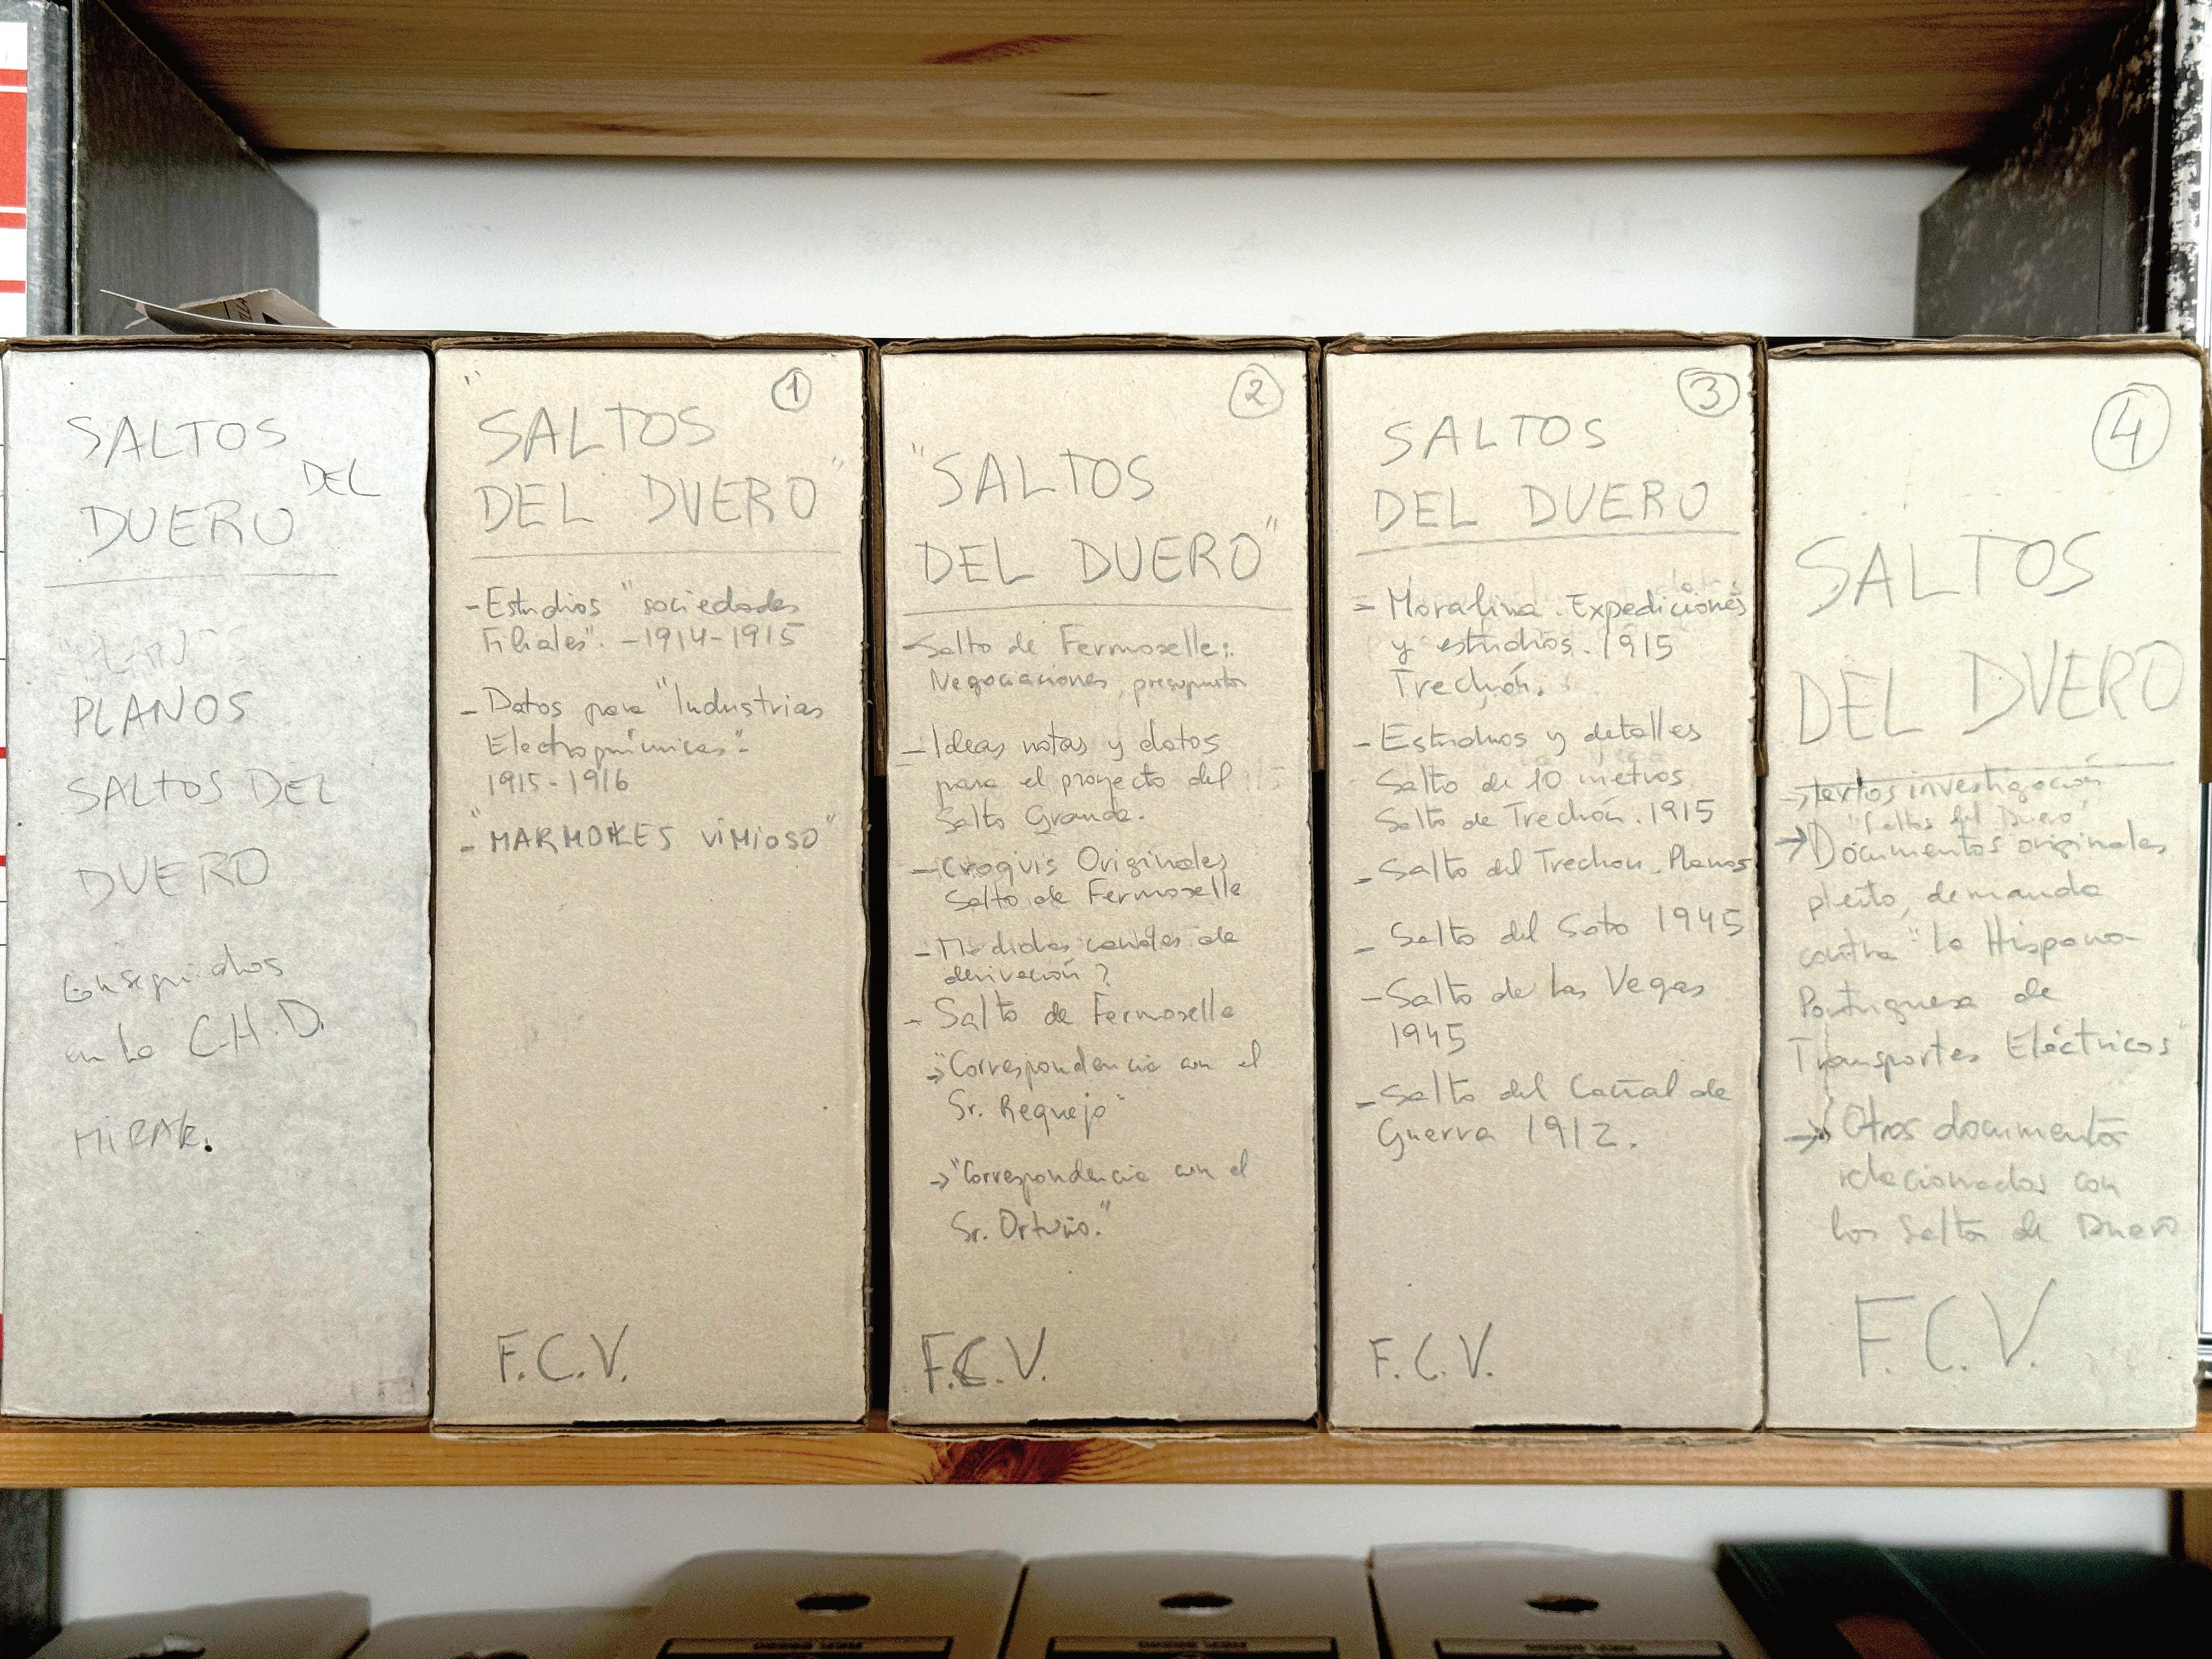 SALTOS
DEL
DUERO
PLANOS
SALTOS DEL
DUERO
Conseguidos
en la C.H.D.
MIRAR.
1
"SALTOS
DEL DUERO"
- Estudios "sociedades
Filiales". - 1914-1915
- Datos para "Industrias
Electroquímicas" -
1915-1916
- "MARMOLES VIMIOSO"
F.C.V.
2
"SALTOS
DEL DUERO"
- Salto de Fermoselle:
Negociaciones, presupuestos
- Ideas notas y datos
para el proyecto del
Salto Grande.
- Croquis Originales
Salto de Fermoselle
- Medidas canales de
derivación?
- Salto de Fermoselle
→ "Correspondencia con el
Sr. Requejo"
→ "Correspondencia con el
Sr. Ortuño."
F.C.V.
3
SALTOS
DEL DUERO
- Moralina. Expediciones
y estudios. 1915
Trechón.
- Estudios y detalles
Salto de 10 metros
Salto de Trechón. 1915
- Salto del Trechon. Planos
- Salto del Soto 1945
- Salto de las Vegas
1945
- Salto del Cañal de
Guerra 1912.
F.C.V.
4
SALTOS
DEL DUERO
→ textos investigación
"Saltos del Duero"
→ Documentos originales
pleito, demanda
contra "la Hispano-
Portuguesa de
Transportes Eléctricos"
→ Otros documentos
relacionados con
los Saltos de Duero
F.C.V.